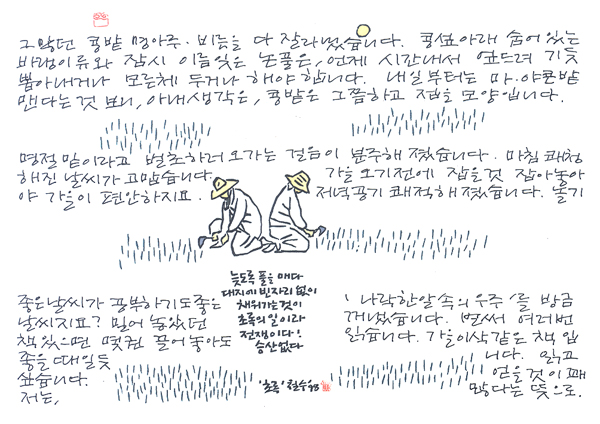 그 악던 콩밭 명아주·비름을 다 잘라냈습니다. 콩섶아래 숨어있는
바랭이류와 잠시 이름잊은 논풀은, 언제 시간내서 엎드려 기듯
뽑아내거나 모른체 두거나 해야 합니다. 내일부터는 마·야콘밭
맨다는 것 보니, 아내생각은, 콩밭은 그쯤하고 접을 모양입니다.
명절 밑이라고 벌초하러 오가는 걸음이 분주해졌습니다. 마침 쾌청
해진 날씨가 고맙습니다.
가을 오기전에 잡을것 잡아놓아
야 가을이 편안하지요.
저녁공기 쾌적해졌습니다. 놀기
늦도록 풀을 매다
대지에 빈자리 없이
채워가는 것이
초록의 일이라
전쟁이다!
승산없다
'초록' 철수
좋은날씨가 공부하기도 좋은
날씨지요? 밀어 놓았던
책 있으면 몇권 끌어놓아도
좋을 때일듯
싶습니다.
저는,
'나락한알 속의 우주'를 방금
꺼내왔습니다. 벌써 여러번
읽습니다. 가을이삭같은 책 입
니다. 읽고
얻을것이 꽤
많다는 뜻으로.